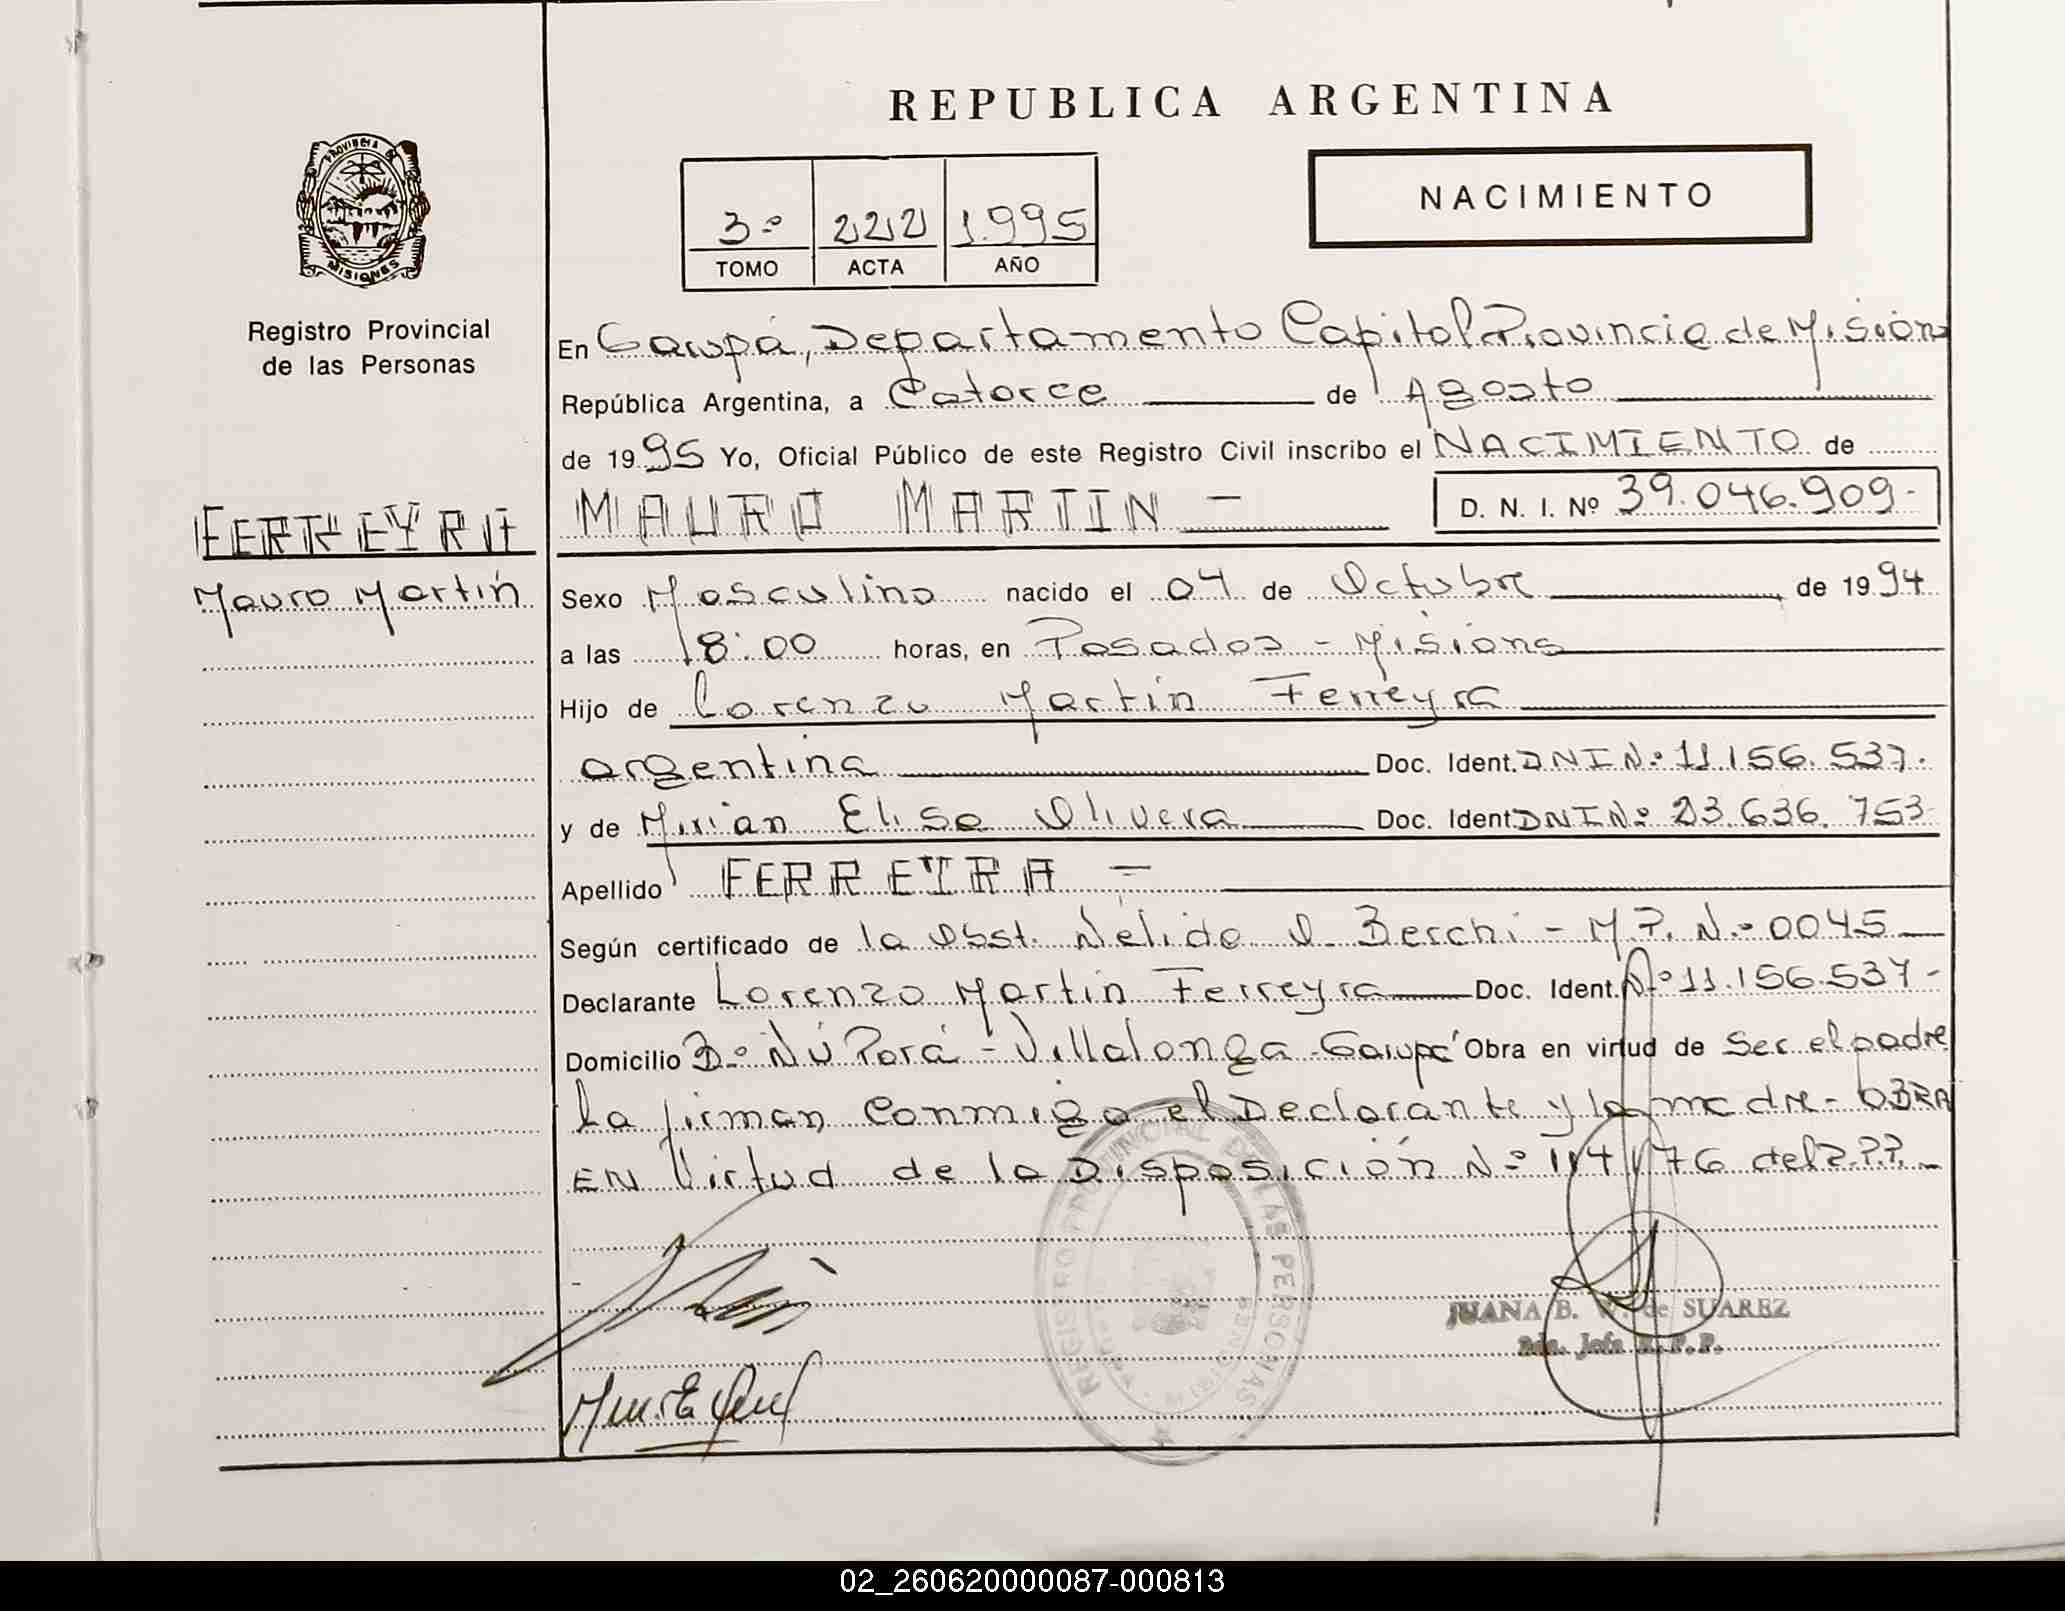 REPUBLICA ARGENTINA
PROVINCIA DE
MISIONES
Registro Provincial
de las Personas
3º 222 1.995
TOMO ACTA AÑO
NACIMIENTO
En Garupá, Departamento Capital Provincia de Misiones
República Argentina, a Catorce de Agosto
de 1995 Yo, Oficial Público de este Registro Civil inscribo el NACIMIENTO de
FERREYRA
MAURO MARTIN - D. N. I. Nº 39.046.909-
Mauro Martín
Sexo Masculino nacido el 04 de Octubre de 1994
a las 18:00 horas, en Posadas - Misiones
Hijo de Lorenzo Martín Ferreyra
argentina Doc. Ident. DNI Nº 11.156.537.
y de Mirian Elisa Olivera Doc. Ident DNI Nº 23.636.753-
Apellido FERREYRA -
Según certificado de la Obst. Nélida O. Berchi - M.P. Nº 0045
Declarante Lorenzo Martín Ferreyra Doc. Ident. Nº 11.156.537-
Domicilio Bº Ñú Porá - Villalonga - Garupá Obra en virtud de Ser el padre
La firman Conmigo el Declarante y la madre - OBRA
EN Virtud de la Disposición Nº 114/76 del R.P.P. -
REGISTRO PROVINCIAL DE LAS PERSONAS
MISIONES
JUANA B. W. de SUAREZ
2da. Jefa R.P.P.
02_260620000087-000813